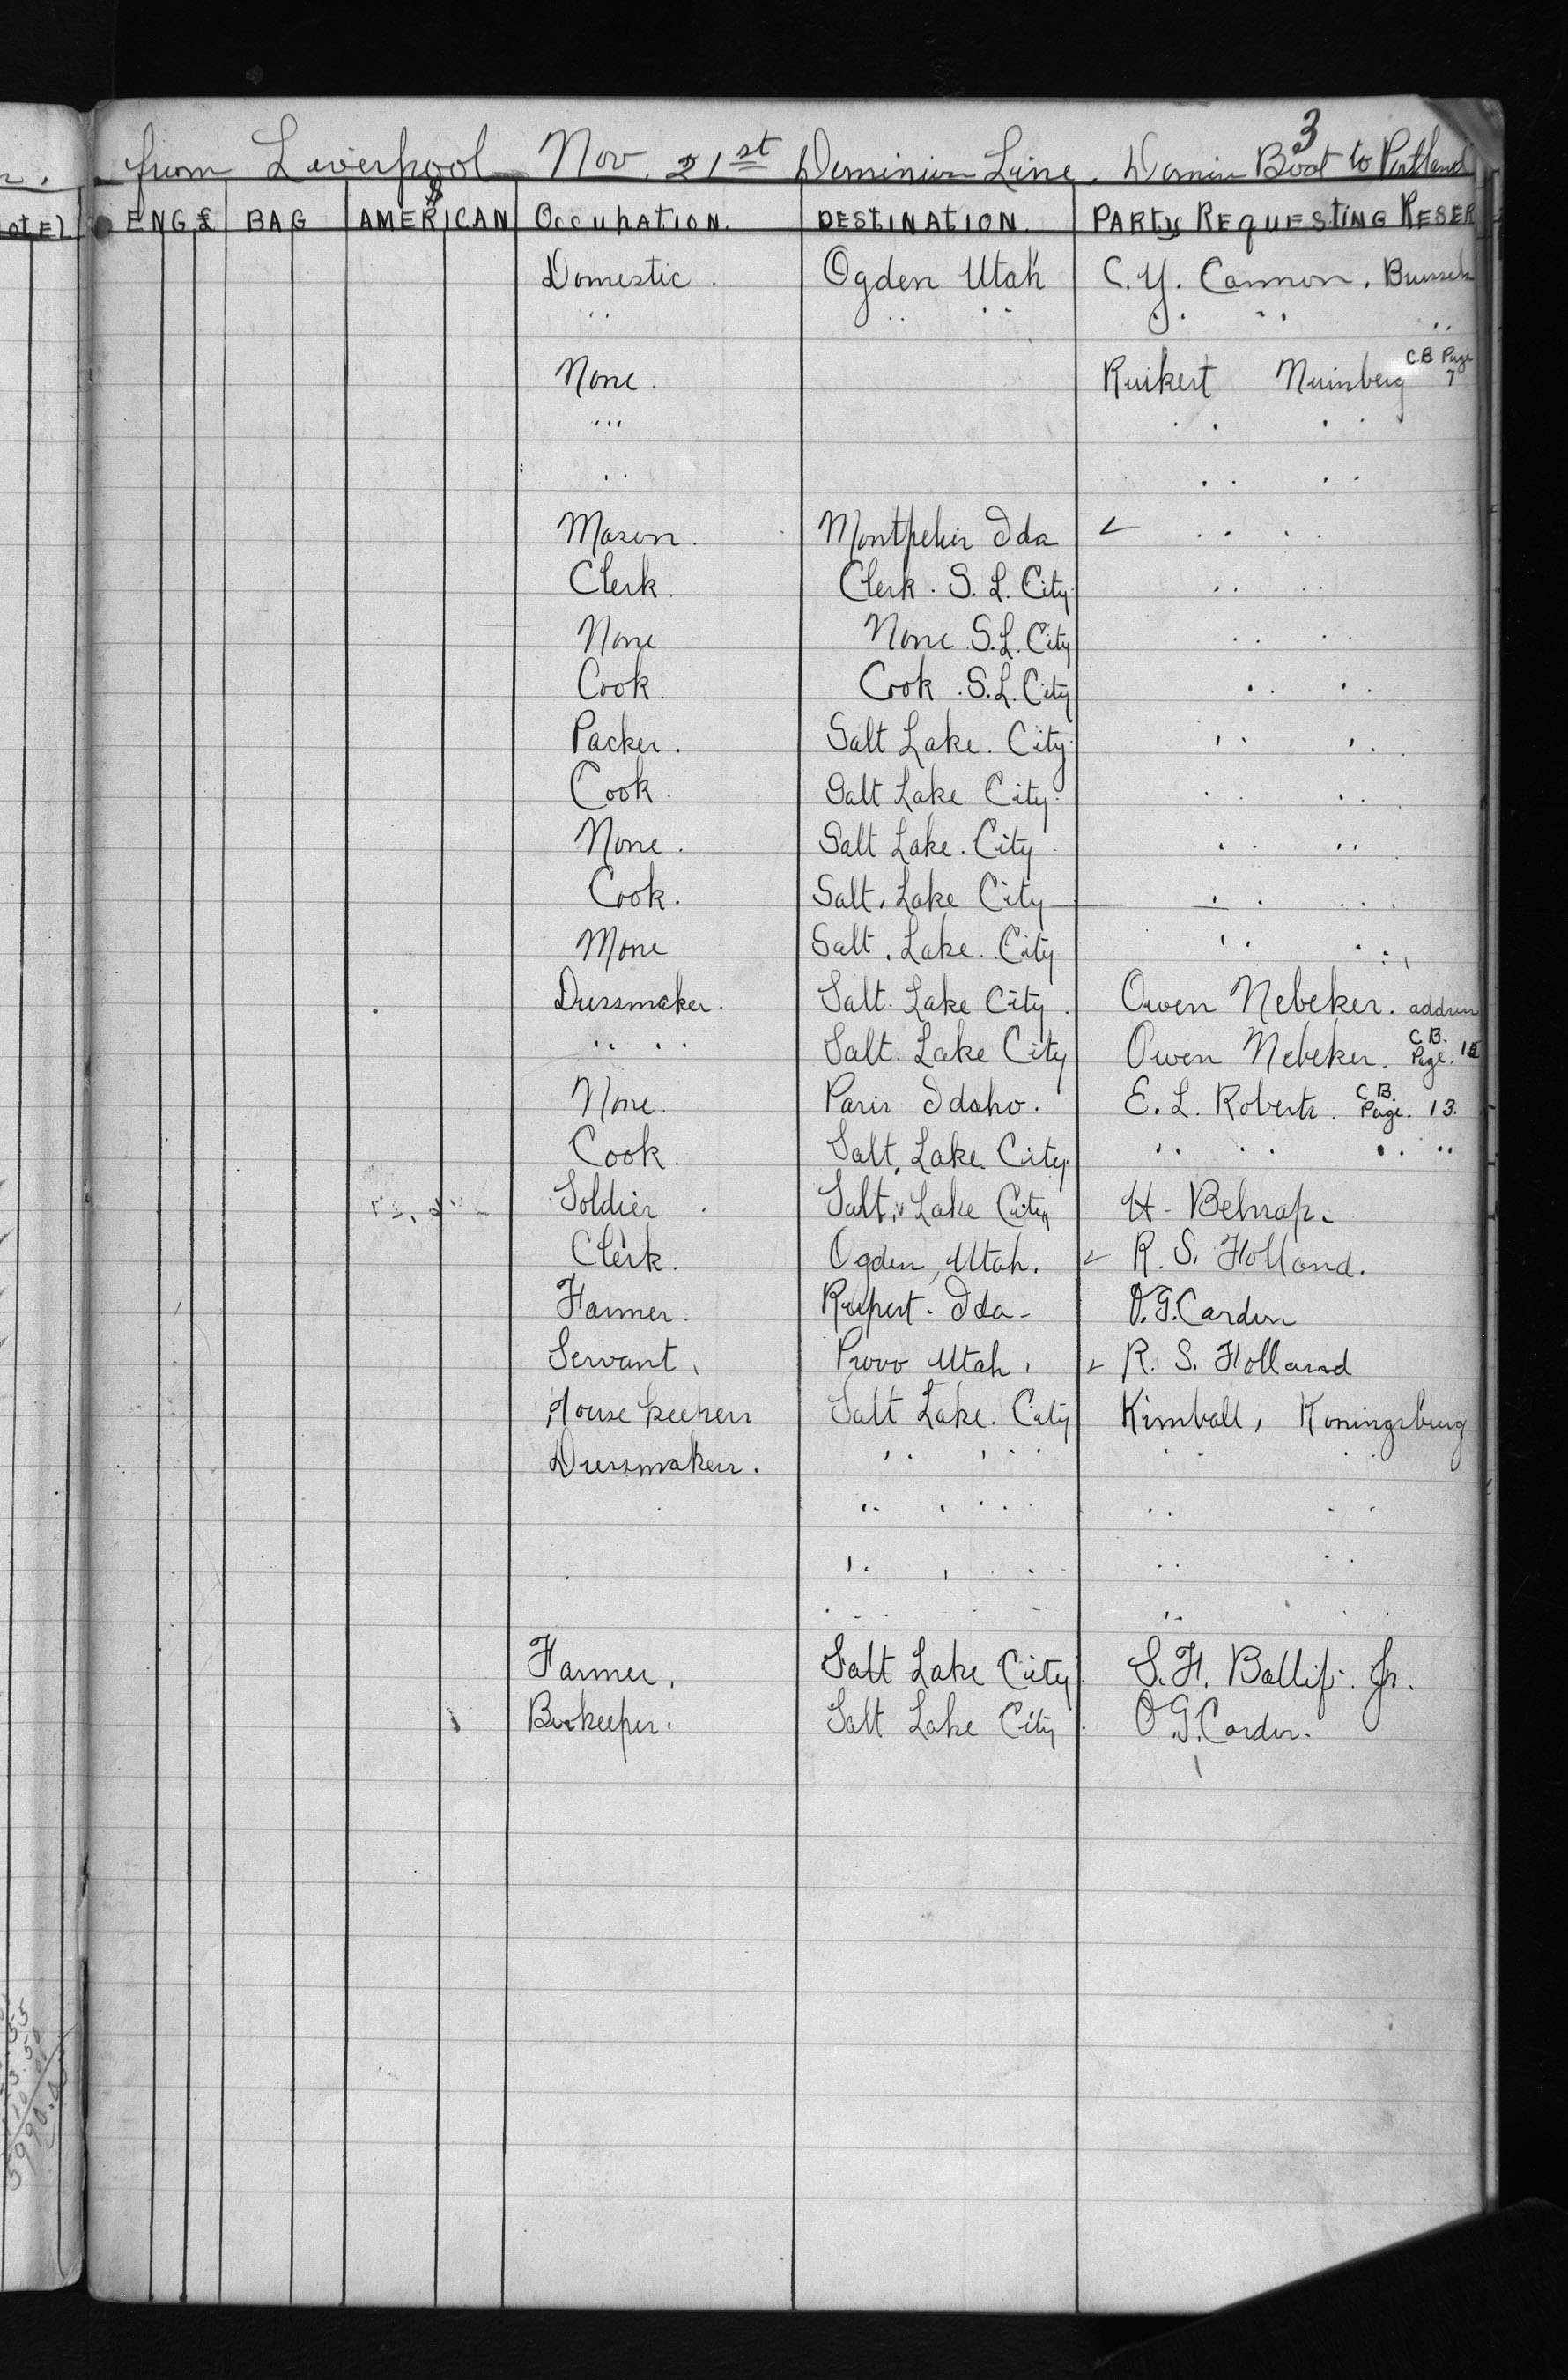 3
from Liverpool Nov. 21st Dominion Line. Domin Boat to Portland
ENG £ BAG AMERICAN $ Occupation. DESTINATION. PARTY REQUESTING RESER
Domestic. Ogden Utah C. Y. Cannon. Brussels
" " " " " "
None. Ruikert Nurnberg C.B Page 7
" " "
" " "
Mason. Montpelier Ida ✓ " "
Clerk. Clerk. S. L. City. " "
None None. S. L. City " "
Cook. Cook. S. L. City " "
Packer. Salt Lake. City. " "
Cook. Salt Lake City. " "
None. Salt Lake. City. " "
Cook. Salt. Lake City " "
None Salt. Lake. City " "
Dressmaker. Salt. Lake City. Owen Nebeker. address
" " Salt. Lake City Owen Nebeker. C.B. Page.
None. Paris Idaho. E. L. Roberts. C.B. Page. 13.
Cook. Salt. Lake. City. " " " "
Soldier. Salt. Lake City H. Belnap.
Clerk. Ogden, Utah. ✓ R. S. Holland.
Farmer. Rupert. Ida- O.G. Carden
Servant. Provo Utah. ✓ R. S. Holland
House keepers Salt Lake. City Kimball, Koningsburg
Dressmakers. " " " "
" " " "
" " " "
" " " "
Farmer. Salt Lake City S. F. Ballif. Jr.
Bookkeeper. Salt Lake City. O.G. Carden.